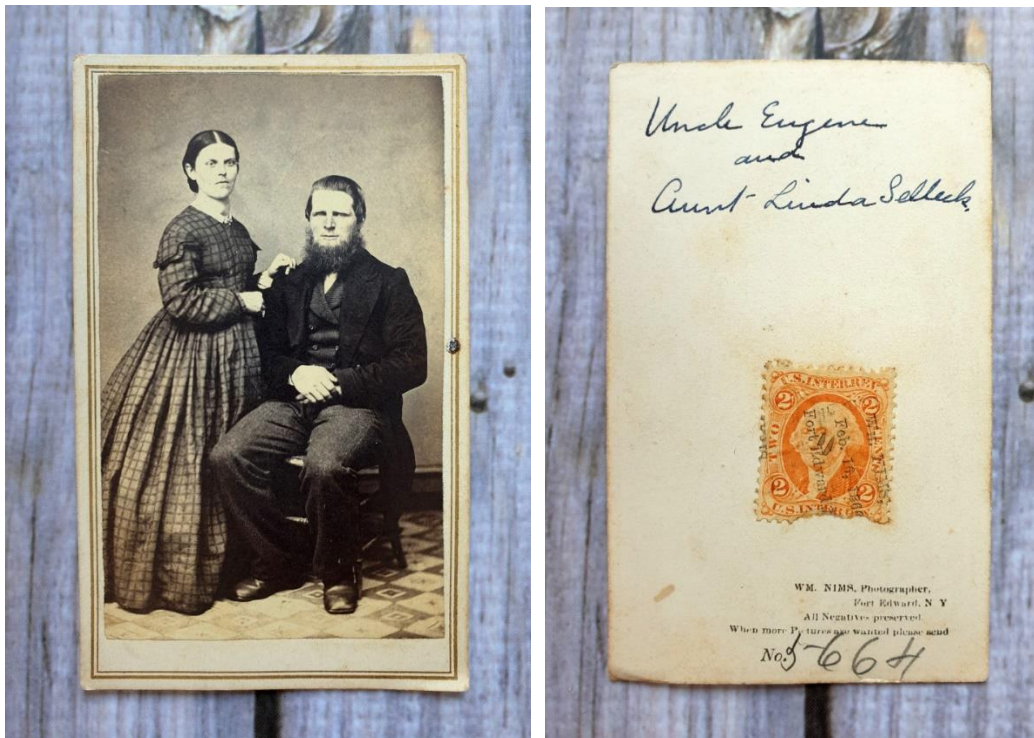 Uncle Eugene
and
Aunt Linda Selleck
U.S. INTER REV
2 2
TWO
2 2
U.S. INTER
WM. NIMS, Photographer,
Fort Edward, N Y
All Negatives preserved.
When more Pictures are wanted please send
No. 5664